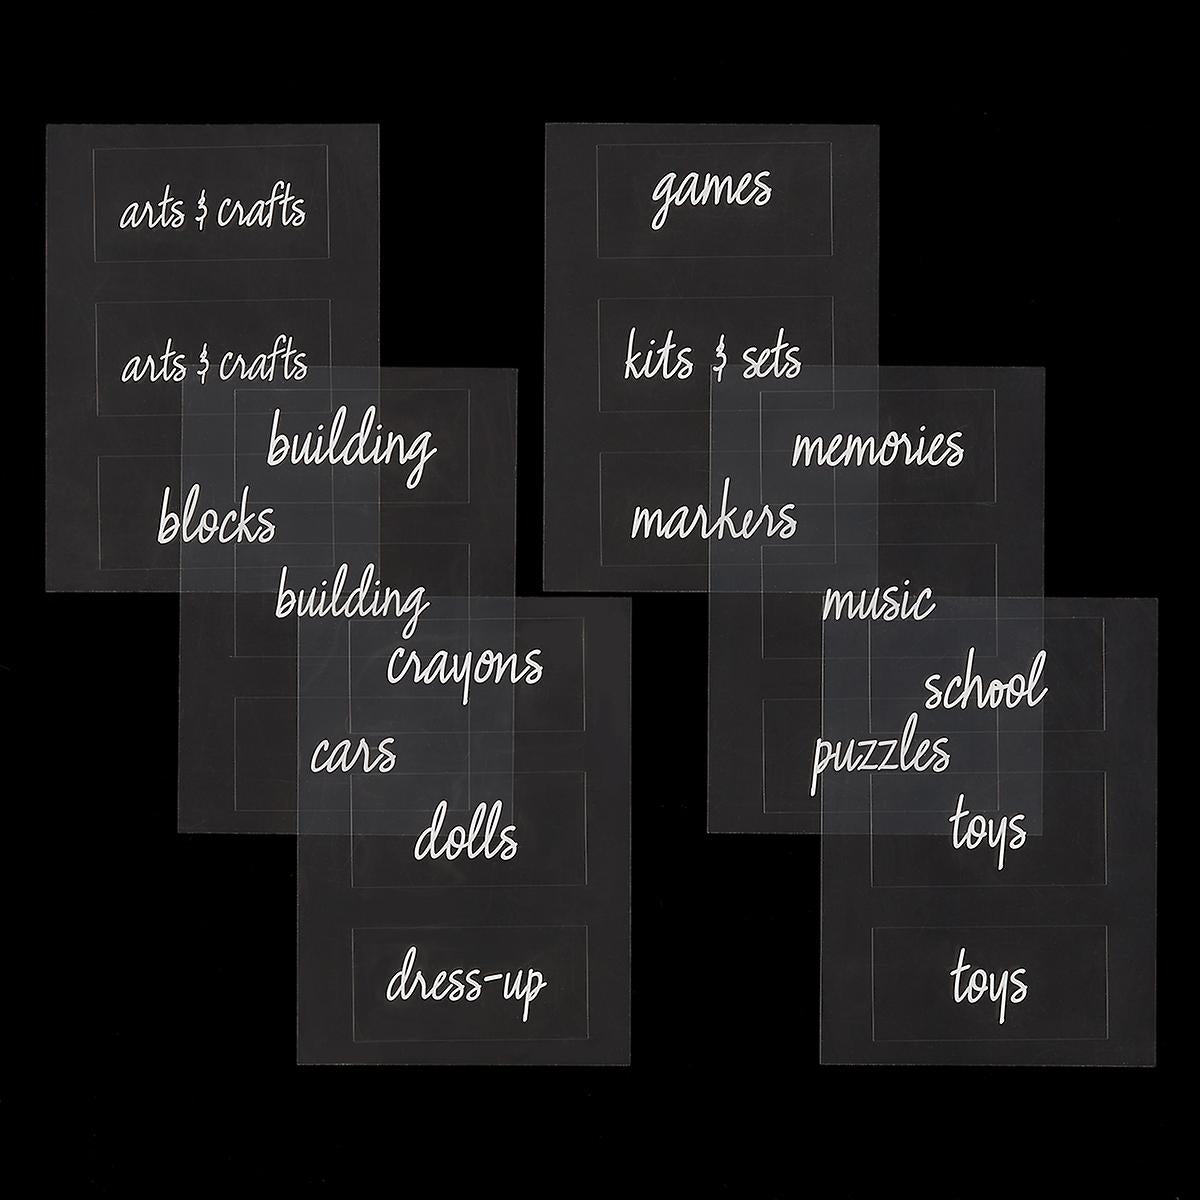 arts & crafts
arts & crafts
blocks
building
building
cars
crayons
dolls
dress-up
games
kits & sets
markers
memories
music
puzzles
school
toys
toys